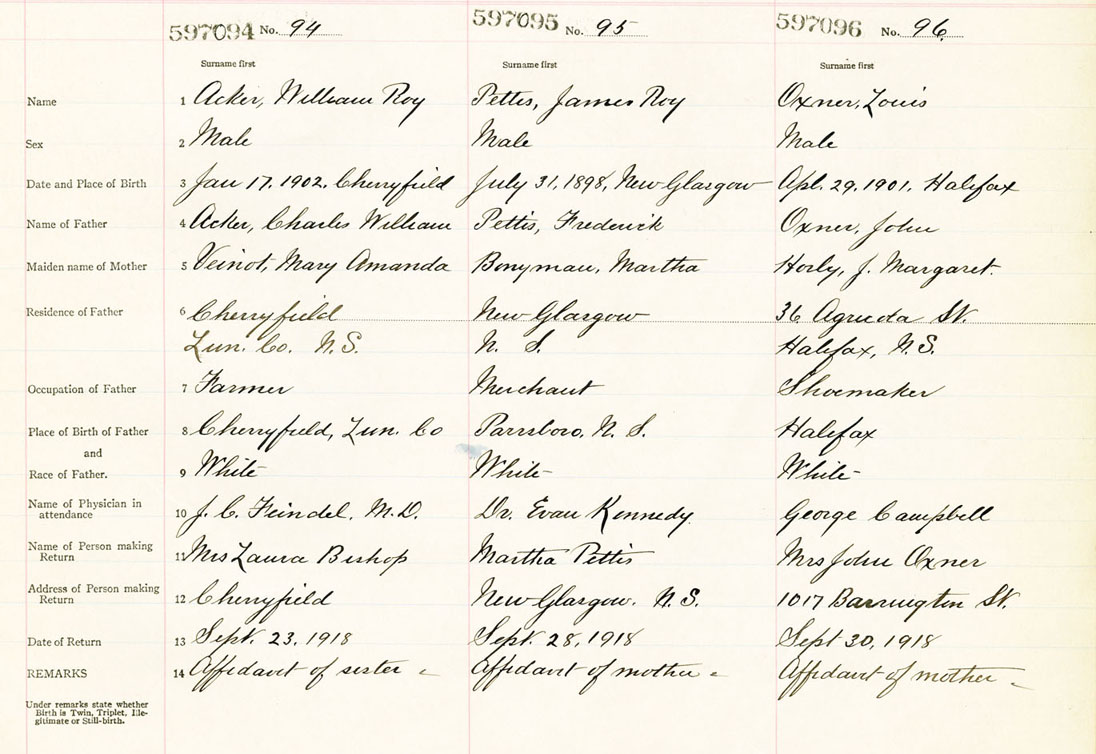 597094 No. 94 597095 No. 95 597096 No. 96
Surname first Surname first Surname first
Name 1 Acker, William Roy Pettis, James Roy Oxner, Louis
Sex 2 Male Male Male
Date and Place of Birth 3 Jan 17, 1902. Cherryfield July 31, 1898, New Glasgow Apl. 29, 1901, Halifax
Name of Father 4 Acker, Charles William Pettis, Frederick Oxner, John
Maiden name of Mother 5 Veinot, Mary Amanda Bonyman, Martha J. Margaret.
Residence of Father 6 Cherryfield New Glasgow 36 St.
Lun. Co. N.S. N. S. Halifax, N.S.
Occupation of Father 7 Farmer Merchant Shoemaker
Place of Birth of Father 8 Cherryfield, Lun. Co Parrsboro, N. S. Halifax
and
Race of Father. 9 White White White
Name of Physician in
attendance 10 J. C. Feindel, M.D. Dr. Evan Kennedy George Campbell
Name of Person making
Return 11 Mrs Laura Bishop Martha Pettis Mrs John Oxner
Address of Person making
Return 12 Cherryfield New Glasgow. N.S. 1017 Barrington St.
Date of Return 13 Sept. 23, 1918 Sept. 28, 1918 Sept 30, 1918
REMARKS 14 Affidavit of sister - Affidavit of mother - Affidavit of mother -
Under remarks state whether
Birth is Twin, Triplet, Ille-
gitimate or Still-birth.